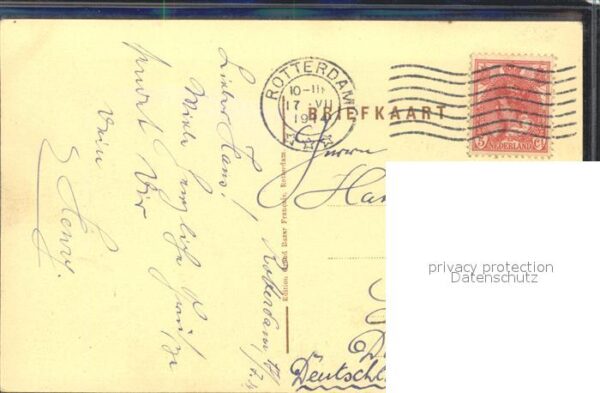 ROTTERDAM
10-11
17 VII
19
BRIEFKAART
5 ct
NEDERLAND
Herrn
Han
privacy protection
Datenschutz
D
Deutschl
Edition Grand Bazar Français, Rotterdam
Rotterdam 17/7
Lieber Hans!
Viele herzliche Grüße
sendet Dir
Dein
Henry.